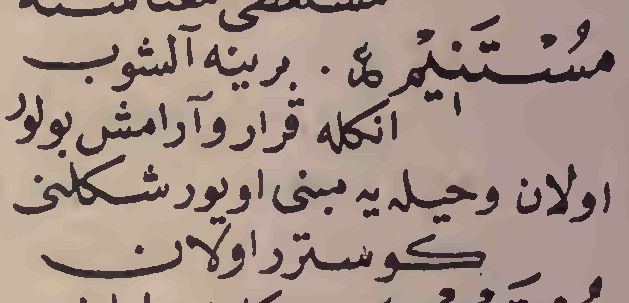 مُسْتَنِيْمٌ ع . برينه آلشوب
انكله قرار و آرامش بولور
اولان وحيله يه مبنى اويور شكلنى
كوسترر اولان